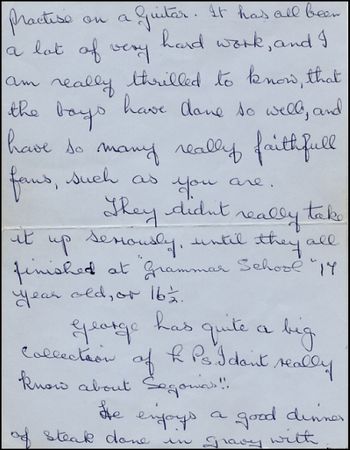 practise on a Guitar. It has all been
a lot of very hard work, and I
am really thrilled to know, that
the boys have done so well, and
have so many really faithfull
fans, such as you are.
They didnt really take
it up seriously, until they all
finished at "Grammar School" 17
year old, or 16½.
George has quite a big
Collection of L Ps. I dont really
know about Segovia!!
He enjoys a good dinner
of steak done in gravy with